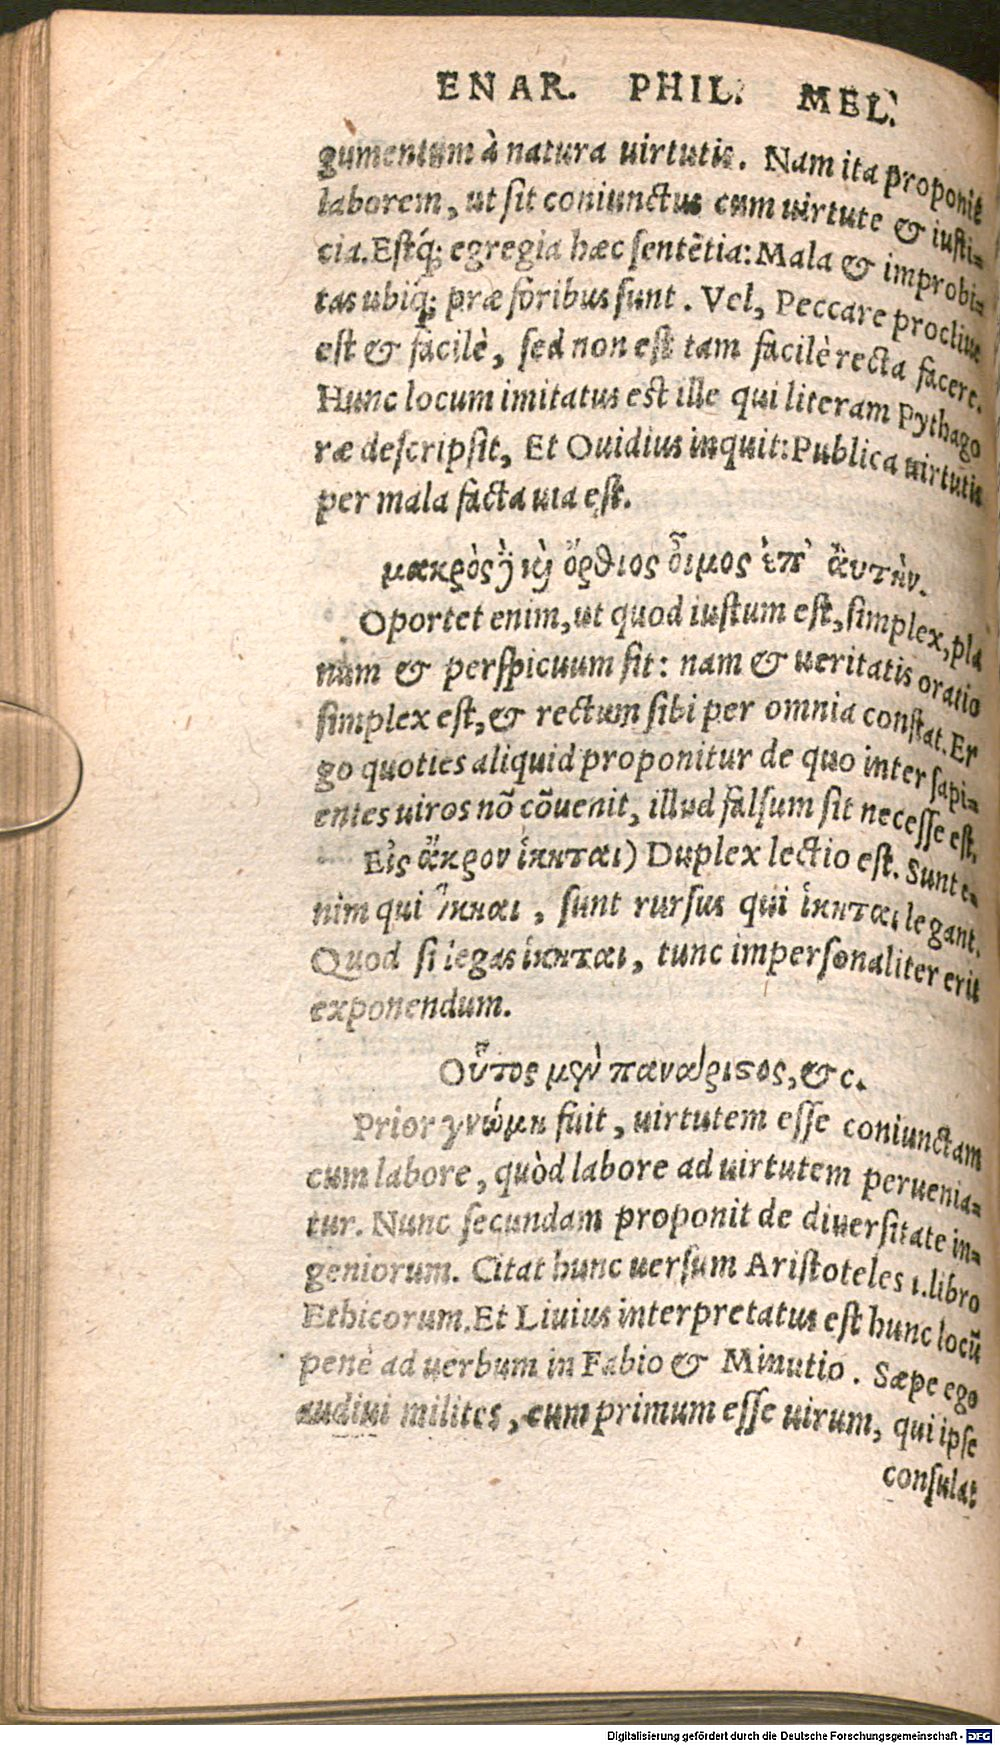 ENAR. PHIL. MEL.
gumentum à natura uirtutis. Nam ita proponit
laborem, ut sit coniunctus cum uirtute & iusti-
cia. Estq́; egregia hæc sentẽtia: Mala & improbi-
tas ubiq́; præ foribus sunt. Vel, Peccare procliue
est & facilè, sed non est tam facilè recta facere.
Hunc locum imitatus est ille qui literam Pythago
ræ descripsit, Et Ouidius inquit: Publica uirtutis
per mala facta uia est.
μακρὸς ϳ̀ καὶ ὄρθιος οἶμος ἐπ᾽ ἀυτὴν.
Oportet enim, ut quod iustum est, simplex, pla
num & perspicuum sit: nam & ueritatis oratio
simplex est, & rectum sibi per omnia constat. Er
go quoties aliquid proponitur de quo inter sapi-
entes uiros nõ cõuenit, illud falsum sit necesse est.
Εἰς ἄκρον ἵκηται) Duplex lectio est. Sunt e-
nim qui ἵκηαι, sunt rursus qui ἵκηται legant.
Quod si legas ἵκηται, tunc impersonaliter erit
exponendum.
Οὗτος μὲν πανάριστος, &c.
Prior γνώμη fuit, uirtutem esse coniunctam
cum labore, quòd labore ad uirtutem peruenia-
tur. Nunc secundam proponit de diuersitate in-
geniorum. Citat hunc uersum Aristoteles 1. libro
Ethicorum. Et Liuius interpretatus est hunc locũ
penè ad uerbum in Fabio & Minutio. Sæpe ego
audiui milites, eum primum esse uirum, qui ipse
consulat
Digitalisierung gefördert durch die Deutsche Forschungsgemeinschaft - DFG